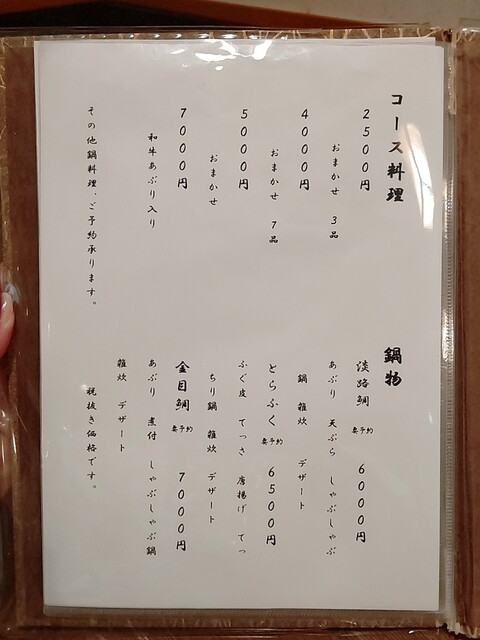 コース料理
2500円
おまかせ 3品
4000円
おまかせ 7品
5000円
おまかせ
7000円
和牛あぶり入り
その他鍋料理、ご予約承ります。
鍋物
淡路鯛 要予約 6000円
あぶり 天ぷら しゃぶしゃぶ
鍋 雑炊 デザート
とらふく 要予約 6500円
ふぐ皮 てっさ 唐揚げ てっ
ちり鍋 雑炊 デザート
金目鯛 要予約 7000円
あぶり 煮付 しゃぶしゃぶ鍋
雑炊 デザート
税抜き価格です。